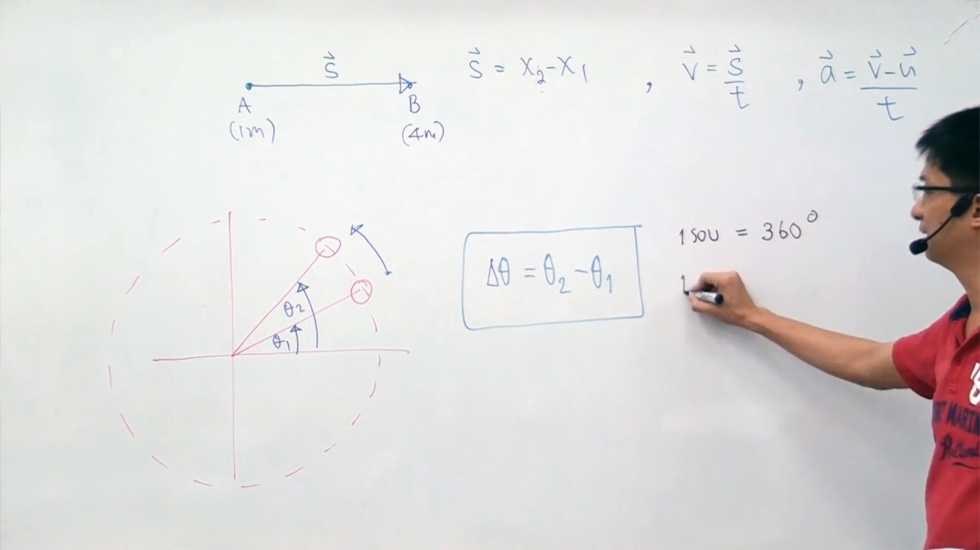 S⃗
A
B
(1m)
(4m)
S⃗ = x₂-x₁ , v⃗ = S⃗/t , a⃗ = (v⃗-u⃗)/t
θ₂
θ₁
Δθ = θ₂-θ₁
1 รอบ = 360°
1